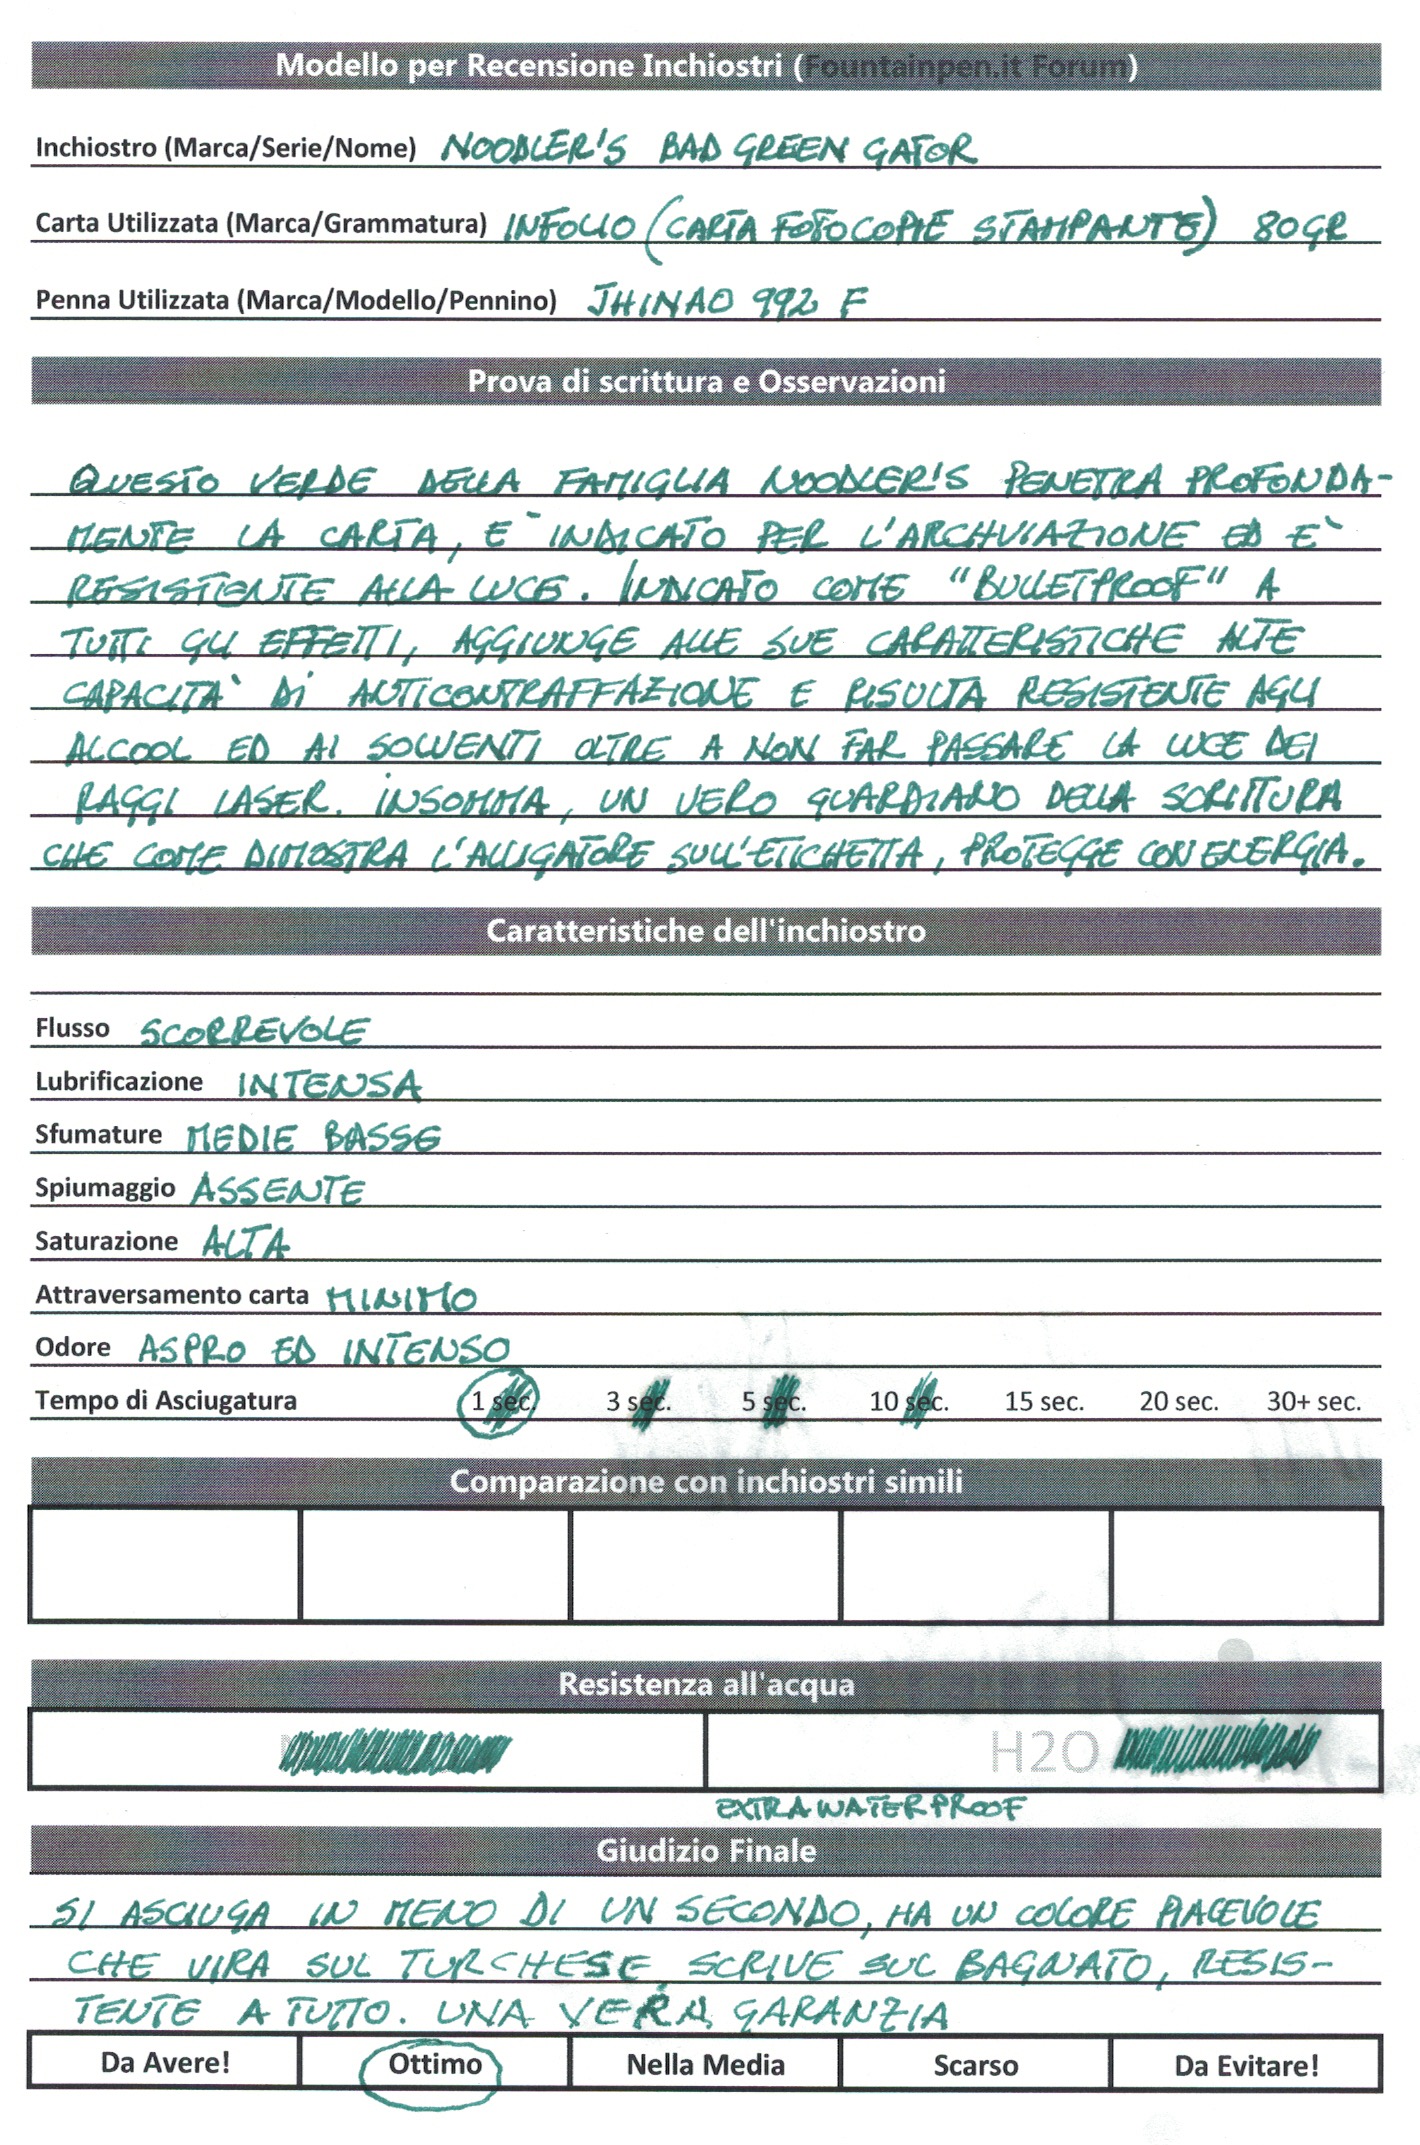 Modello per Recensione Inchiostri (Fountainpen.it Forum)
Inchiostro (Marca/Serie/Nome) NOODLER'S BAD GREEN GATOR
Carta Utilizzata (Marca/Grammatura) INFOLIO (CARTA FOTOCOPIE STAMPANTE) 80GR
Penna Utilizzata (Marca/Modello/Pennino) JHINAO 992 F
Prova di scrittura e Osservazioni
QUESTO VERDE DELLA FAMIGLIA NOODLER'S PENETRA PROFONDA-
MENTE LA CARTA, E` INDICATO PER L'ARCHVIAZIONE ED E`
RESISTENTE ALLA LUCE. INDICATO COME "BULLETPROOF" A
TUTTI GLI EFFETTI, AGGIUNGE ALLE SUE CARATTERISTICHE ALTE
CAPACITA` Di ANTICONTRAFFAZIONE E RISULTA RESISTENTE AGLI
ALCOOL ED AI SOLVENTI OLTRE A NON FAR PASSARE LA LUCE DEI
RAGGI LASER. INSOMMA, UN VERO GUARDIANO DELLA SCRITTURA
CHE COME DIMOSTRA L'ALLIGATORE SULL'ETICHETTA, PROTEGGE CON ENERGIA.
Caratteristiche dell'inchiostro
Flusso SCORREVOLE
Lubrificazione INTENSA
Sfumature MEDIE BASSE
Spiumaggio ASSENTE
Saturazione ALTA
Attraversamento carta MINIMO
Odore ASPRO ED INTENSO
Tempo di Asciugatura 1 sec. 3 sec. 5 sec. 10 sec. 15 sec. 20 sec. 30+ sec.
Comparazione con inchiostri simili
Resistenza all'acqua
H2O
EXTRA WATERPROOF
Giudizio Finale
SI ASCIUGA IN MENO DI UN SECONDO, HA UN COLORE PIACEVOLE
CHE VIRA SUL TURCHESE, SCRIVE SUL BAGNATO, RESIS-
TENTE A TUTTO. UNA VERA GARANZIA
Da Avere! Ottimo Nella Media Scarso Da Evitare!